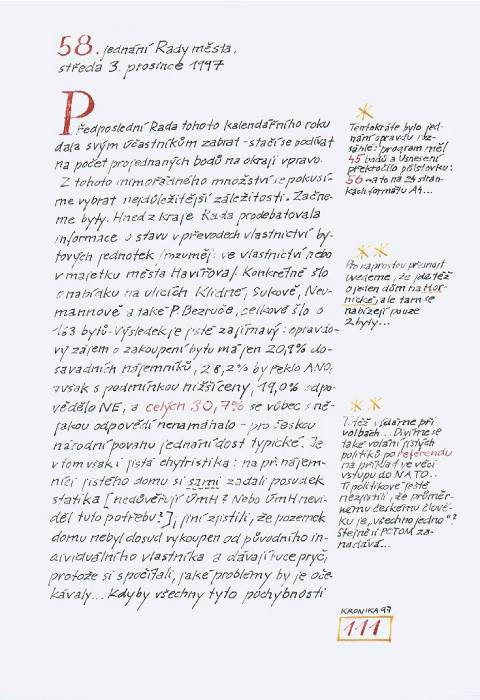 58. jednání Rady města,
středa 3. prosince 1997
Předposlední Rada tohoto kalendářního roku
dala svým účastníkům zabrat - stačí se podívat
na počet projednaných bodů na okraji vpravo.
Z tohoto mimořádného množství se pokusí-
me vybrat nejdůležitější záležitosti. Začne-
me byty. Hned z kraje Rada prodebatovala
informace o stavu v převodech vlastnictví by-
tových jednotek (rozuměj: ve vlastnictví nebo
v majetku města Havířova). Konkrétně šlo
o nabídku na ulicích Klidné, Sukově, Neu-
mannově a také P. Bezruče, celkově šlo o
163 bytů. Výsledek je jistě zajímavý: opravdo-
vý zájem o zakoupení bytu má jen 20,9% do-
savadních nájemníků, 28,2% by řeklo ANO,
avšak s podmínkou nižší ceny, 19,0% odpo-
vědělo NE, a celých 30,7% se vůbec s ně-
jakou odpovědí nenamáhalo - pro českou
národní povahu jednání dost typické. Je
v tom však i jistá chytristika: na př. nájem-
níci jistého domu si sami zadali posudek
statika [nedůvěřují ÚmH? Nebo ÚmH nevi-
děl tuto potřebu?]; jiní zjistili, že pozemek
domu nebyl dosud vykoupen od původního in-
dividuálního vlastníka a dávají ruce pryč,
protože si spočítali, jaké problémy by je oče-
kávaly... Kdyby všechny tyto pochybnosti
*
Tentokráte bylo jed-
nání opravdu roz-
sáhlé: program měl
45 bodů a Usnesení
překročilo půlstovku:
56 na to na 24 strán-
kách formátu A4...
**
Pro naprostou přesnost
uvedeme, že jde též
o jeden dům na Hor-
nické, ale tam se
nabízejí pouze
2 byty...
**
Totéž vídáme při
volbách... Divíme se
také volání jistých
politiků po referendu
na příklad ve věci
vstupu do NATO...
Ti politikové ještě
nezjistili, že průměr-
nému českému člově-
ku je „všechno jedno“?
Stejně si POTOM za-
nadává...
KRONIKA 97
111